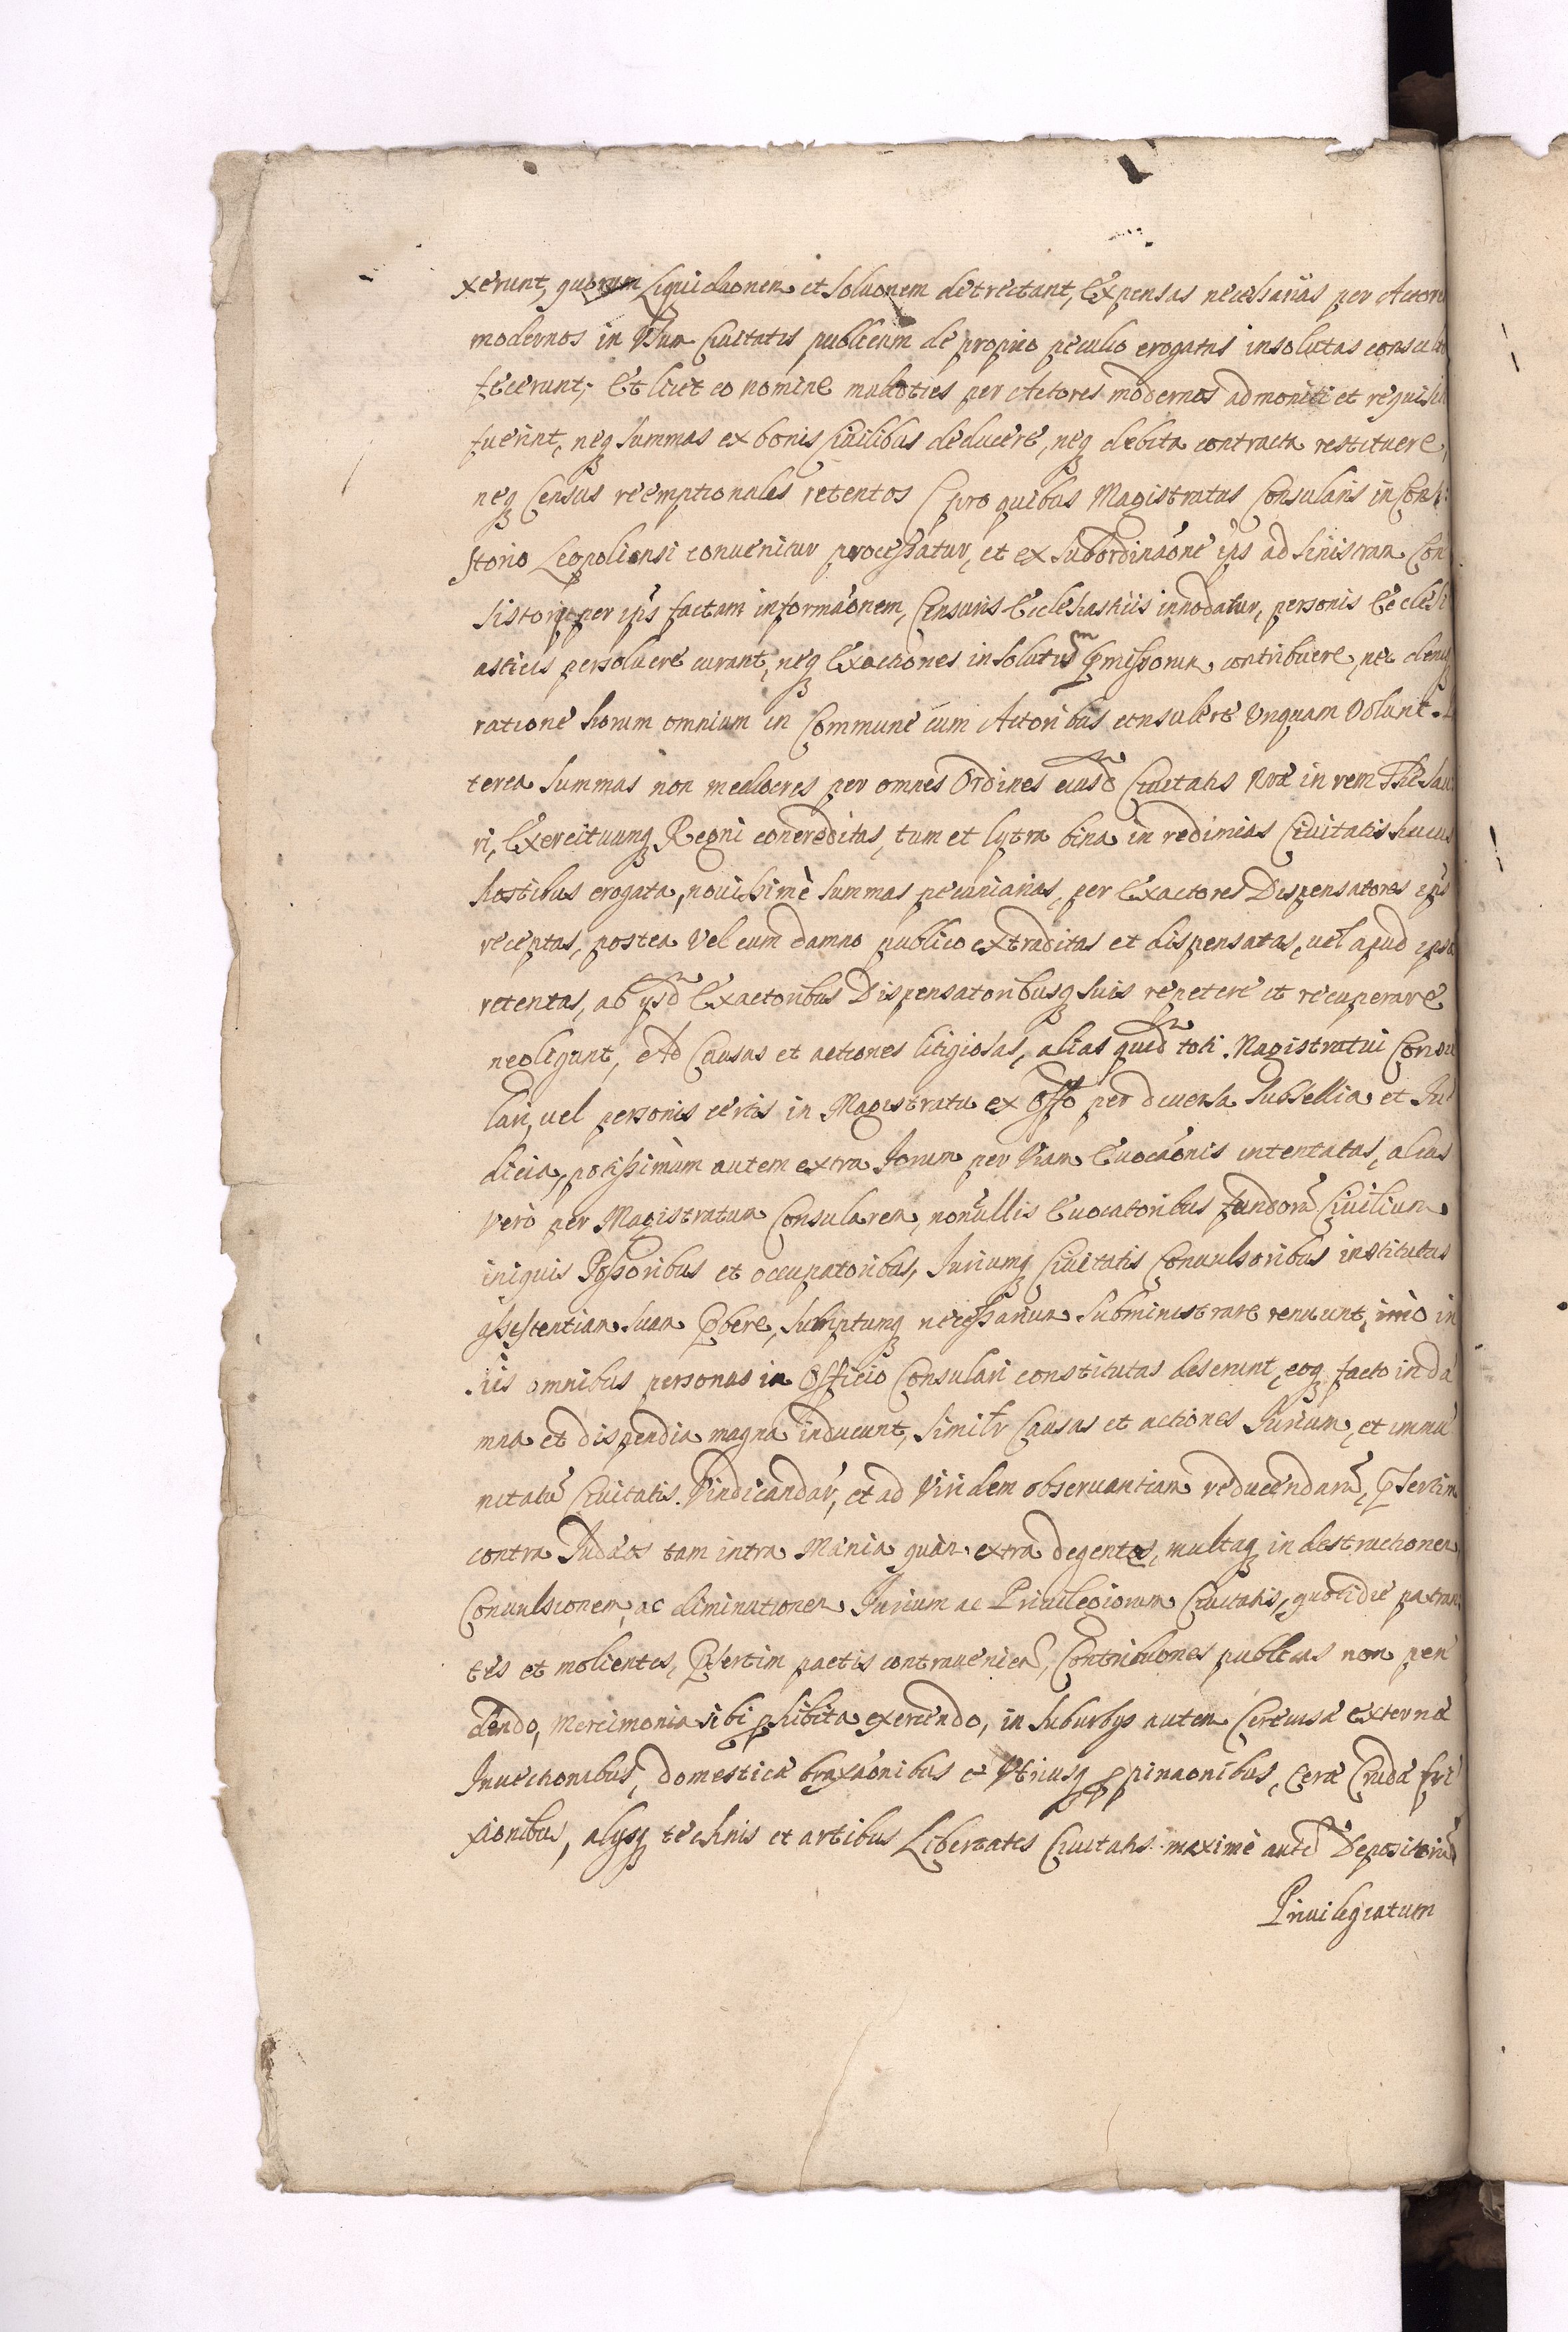 xerunt, quorum Liquidaonem et Soluonem detrectant, Expensas necessarias per Actores
modernos in Vsum Ciuitatis publicum de proprio peculio erogatas insolutas consulto
fecerunt; Et licet eo nomine multoties per Actores modernos admoniti et requisiti
fuerint, neq3 Summas ex bonis Ciuilibus deducere, neq3 debita contracta restituere,
neq3 Census reemptionales retentos (pro quibus Magistratus Consularis in Consi:
storio Leopoliensi conuenitur processatur, et ex Subordinaone ips ad sinistram Con
sistorio per ips factam informaonem, Censuris Ecclesiasticis innodatur, personis Ecclesi
asticis persoluere curant, neq3 Exactiones insolutis pmissorum contribuere, nec denuq3
ratione horum omnium in Commune cum Actoribus consulere Vnquam Volunt.
terea Summas non mediocres per omnes Ordines eiusd Ciuitatis Nrae in rem Thesau
ri, Exercituumq3 Regni concreditas, tum et lytra bina in redimias Ciuitatis huius
hostibus erogata, nouissimè Summas pecuniarias, per Exactores Dispensatores ips
receptas, postea Vel cum damno publico extraditas et dispensatas, uel apud ipsos
retentas, ab ijsd Exactoribus Dispensatoribusq3 suis repetere et recuperare
negligunt, Ad Causas et actiones litigiosas, alias quid toti Magistratui Consu
lari, uel personis certis in Magistratu ex Offo per diuersa Subsellia et Iu
dicia, potissimùm autem extra Forum per Viam Euocaonis intentatas, alias
Verò per Magistratum Consularem, nonullis Euocatoribus fundorū Ciuilium
iniquis Possoribus et occupatoribus, Iuriumq3 Ciuitatis Conuulsoribus institutas
assistentiam suam Pbere, Sumptumq3 necessarium Subministrare renuunt, imò in
ijs omnibus personas in Officio Consulari constitutas deserunt, eoq3 facto in da
mna et dispendia magna inducunt, Similr Causas et actiones Iurium, et immu
nitatū Ciuitatis Vindicandar, et ad Viridem obseruantiam reducendarū, psertim
contra Iudaeos tam intra Maenia quàm extra degentes, multaq3 in destructionem
Conuulsionem, ac diminutionem Iurium ac Priuilegiorum Ciuitatis, quotidie patran
tes et molientes, Psertim pactis contraueniend, Contribuones publicas non pen
dendo, Mercimonia sibi phibita exercendo, in Suburbijs autem Ceruisae Externae
Inuectionibus, domesticae braxaonibus et Vtriusq3 ppinaonibus, Cerae Crudae fri
xionibus, alijsq3 technis et artibus Libertates Ciuitatis maximè autē Depositorium
Priuilegiatum